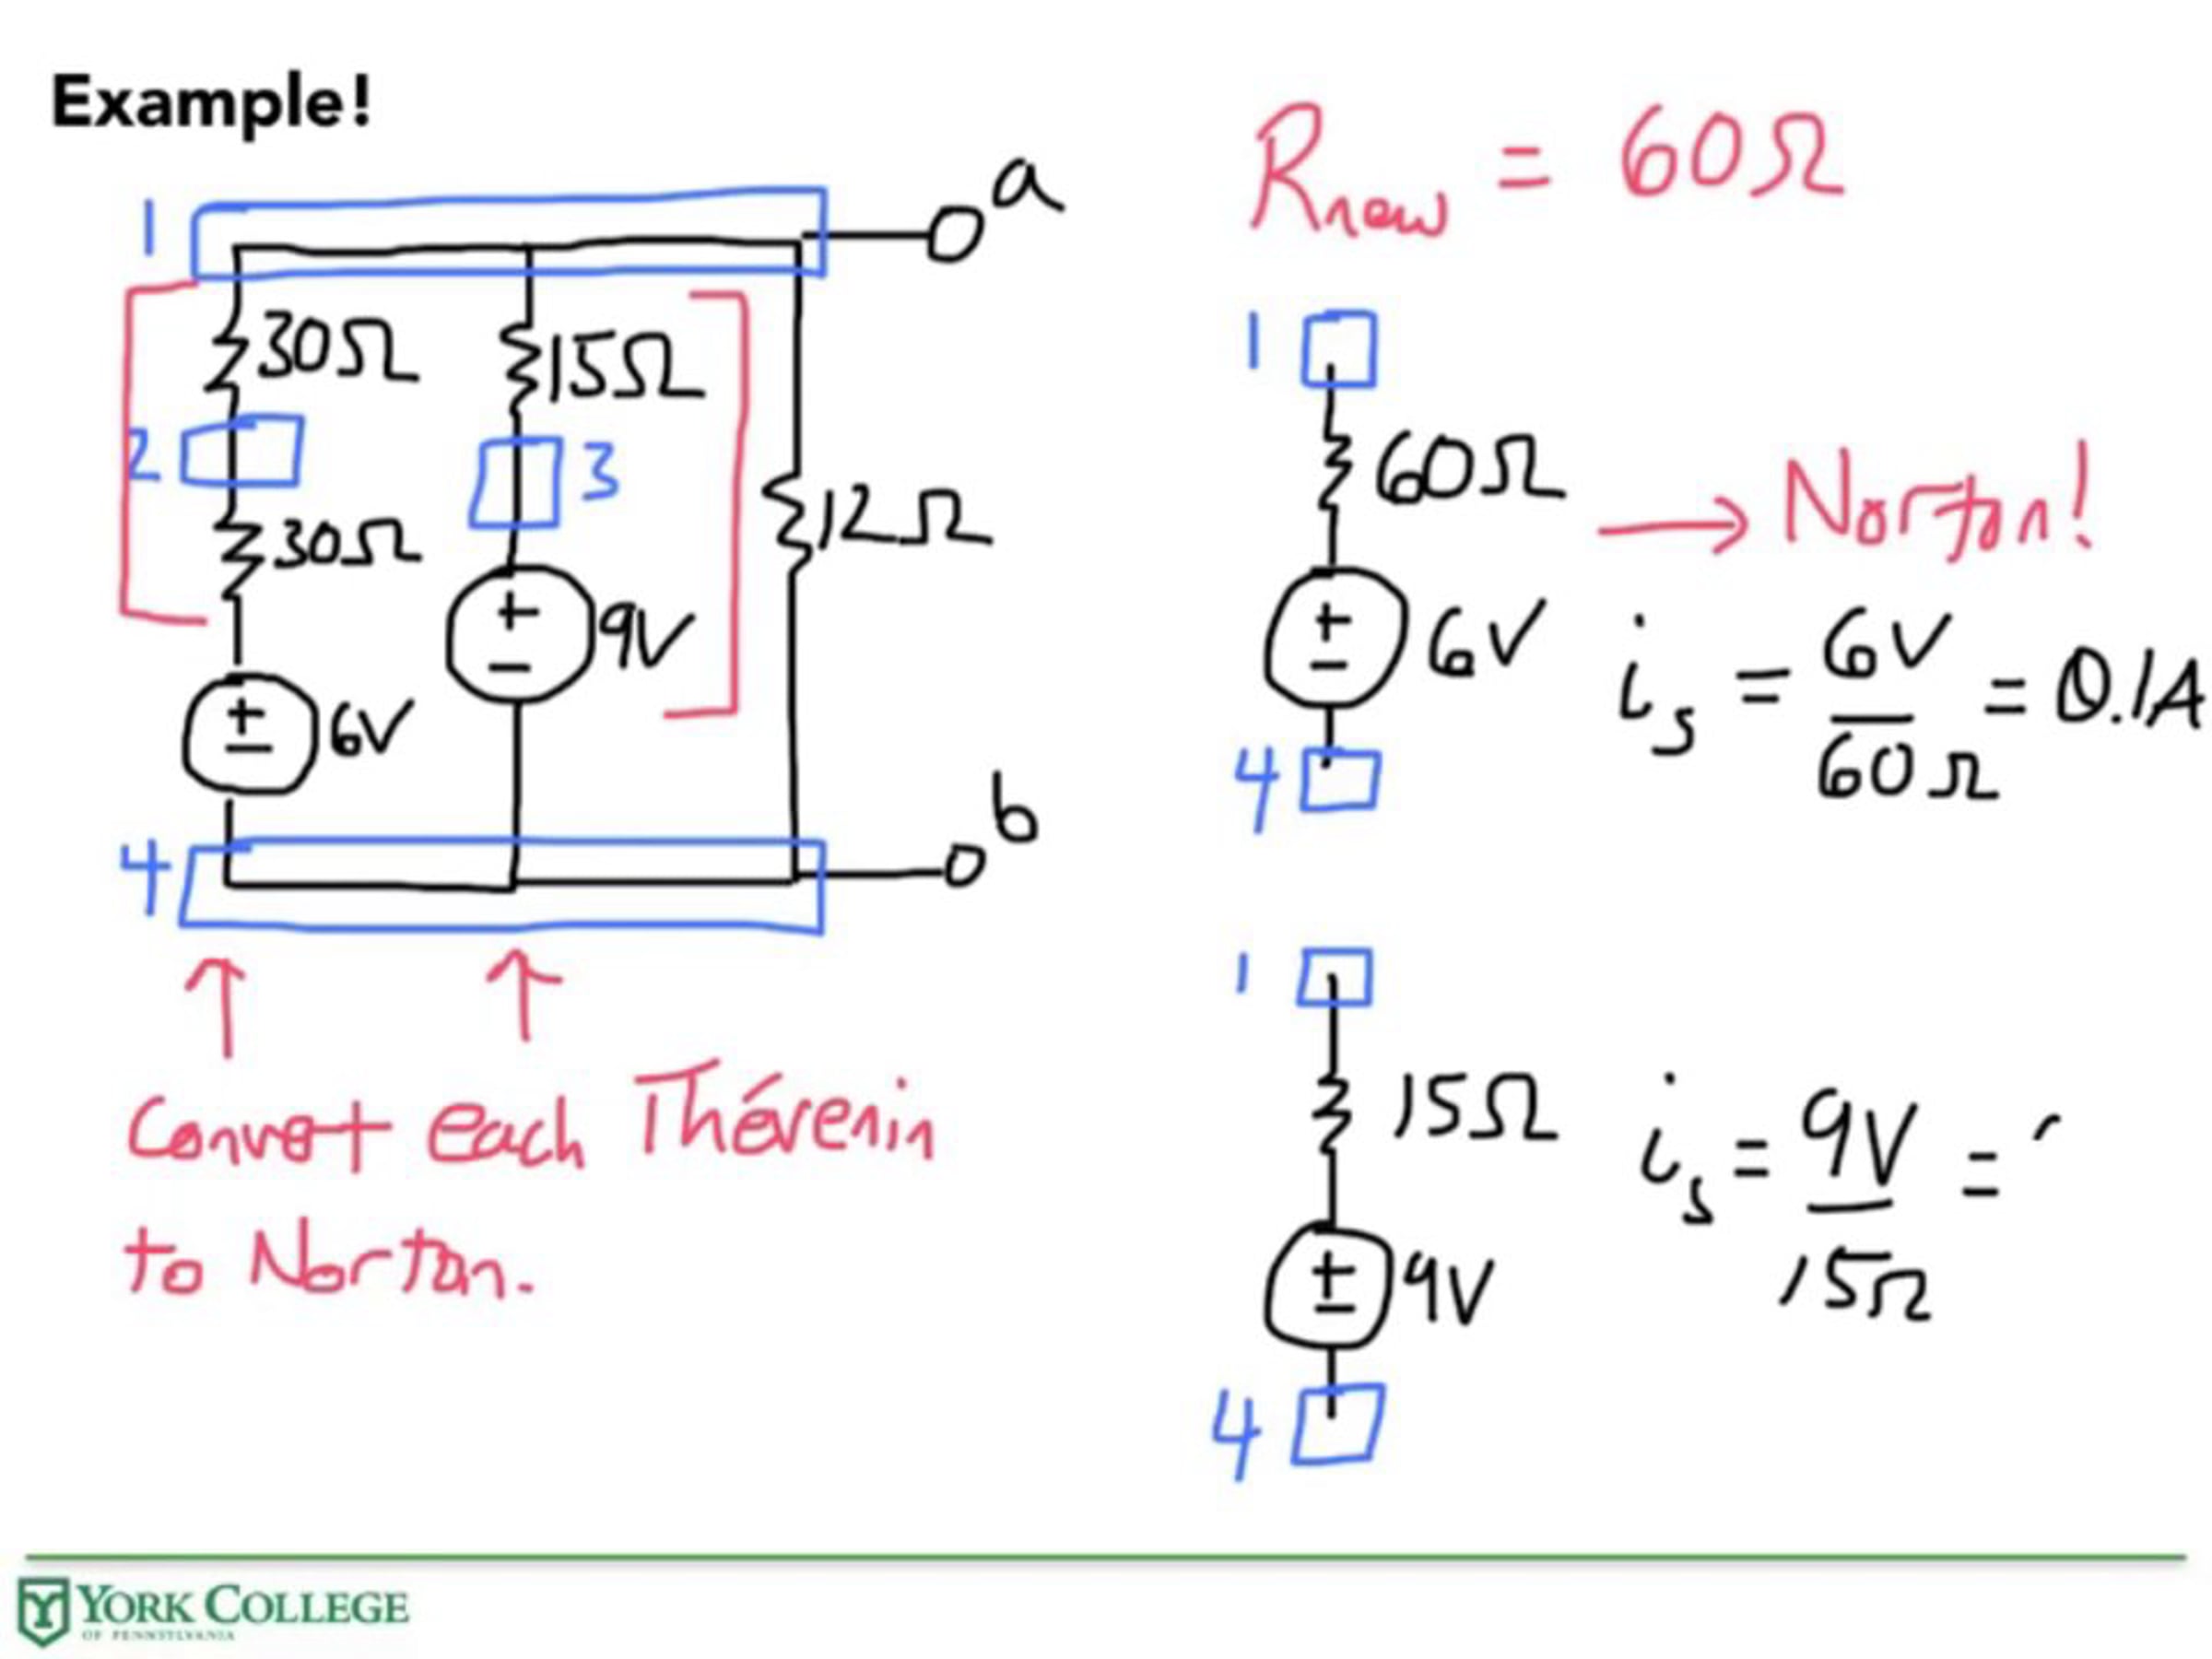 Example!
1
a
30Ω
15Ω
2
3
30Ω
12Ω
+
−
9V
+
−
6V
b
4
Convert each Thévenin
to Norton.
Rnew = 60Ω
1
60Ω
→ Norton!
+
−
6V
is = 6V = 0.1A
60Ω
4
1
15Ω
is = 9V =
15Ω
+
−
9V
4
YORK COLLEGE
OF PENNSYLVANIA